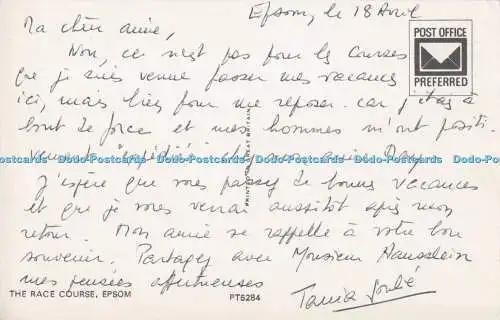 Epsom, le 18 Avril
Ma chère amie,
POST OFFICE
PREFERRED
Non, ce n'est pas pour les courses
que je suis venue passer mes vacances
ici, mais bien pour me reposer. Car j'étais à
bout de force et mes hommes m'ont positi-
vement "expédiée" chez une amie
Dodo-Postcards Dodo-Postcards Dodo-Postcards Dodo-Postcards Dodo-Postcards Dodo-Postcards Dodo-Postcards
J'espère que vous passez de bonnes vacances
et que je vous verrai aussitôt après mon
retour. Mon amie se rappelle à votre bon
souvenir. Partagez avec Monsieur
mes pensées affectueuses
Tania
THE RACE COURSE, EPSOM
PT5284
PRINTED IN GREAT BRITAIN